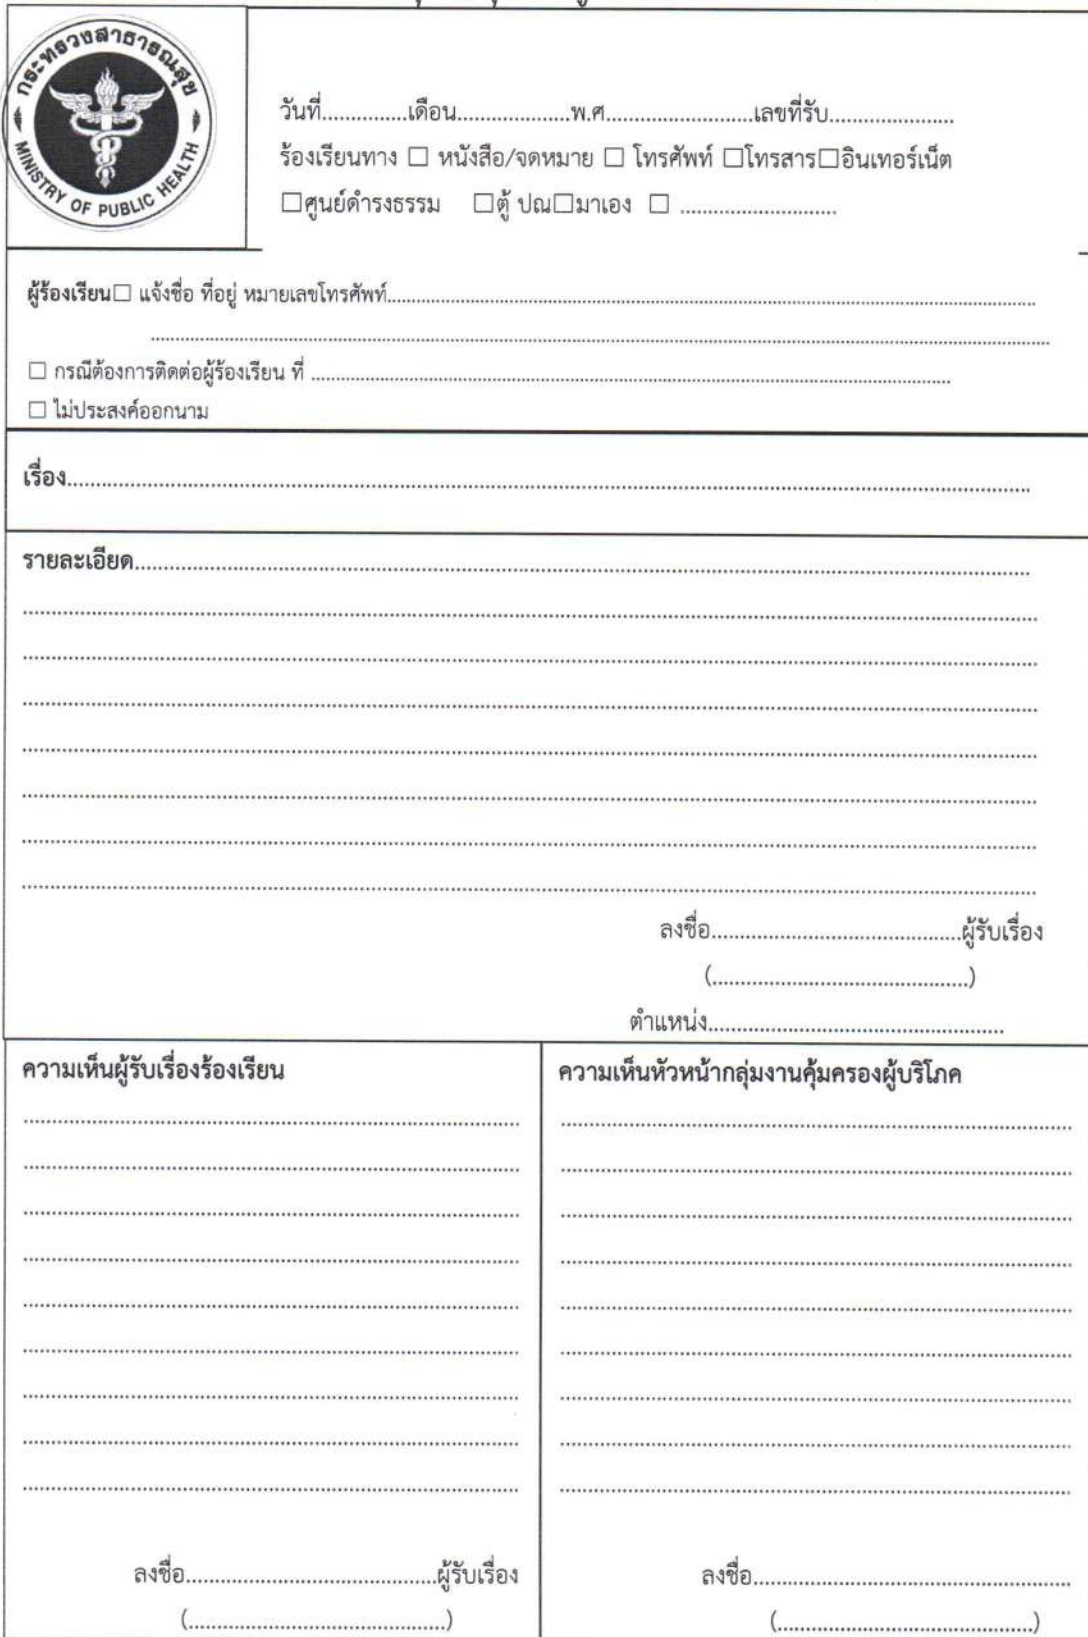 กระทรวงสาธารณสุข
MINISTRY OF PUBLIC HEALTH
วันที่...............เดือน....................พ.ศ..........................เลขที่รับ......................
ร้องเรียนทาง ☐ หนังสือ/จดหมาย ☐ โทรศัพท์ ☐โทรสาร☐อินเทอร์เน็ต
☐ศูนย์ดำรงธรรม ☐ตู้ ปณ☐มาเอง ☐ ............................
ผู้ร้องเรียน☐ แจ้งชื่อ ที่อยู่ หมายเลขโทรศัพท์....................
☐ กรณีต้องการติดต่อผู้ร้องเรียน ที่ ....................
☐ ไม่ประสงค์ออกนาม
เรื่อง....................
รายละเอียด....................
ลงชื่อ....................ผู้รับเรื่อง
(....................)
ตำแหน่ง....................
ความเห็นผู้รับเรื่องร้องเรียน
ลงชื่อ....................ผู้รับเรื่อง
(....................)
ความเห็นหัวหน้ากลุ่มงานคุ้มครองผู้บริโภค
ลงชื่อ....................
(....................)